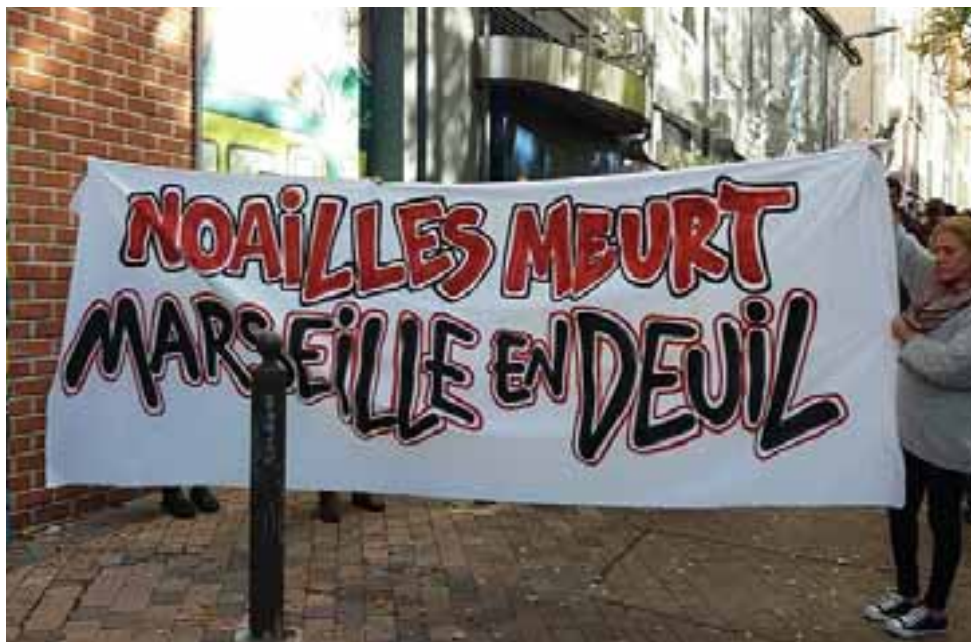 NOAiLLES MEURT
MARSEiLLE EN DEUiL